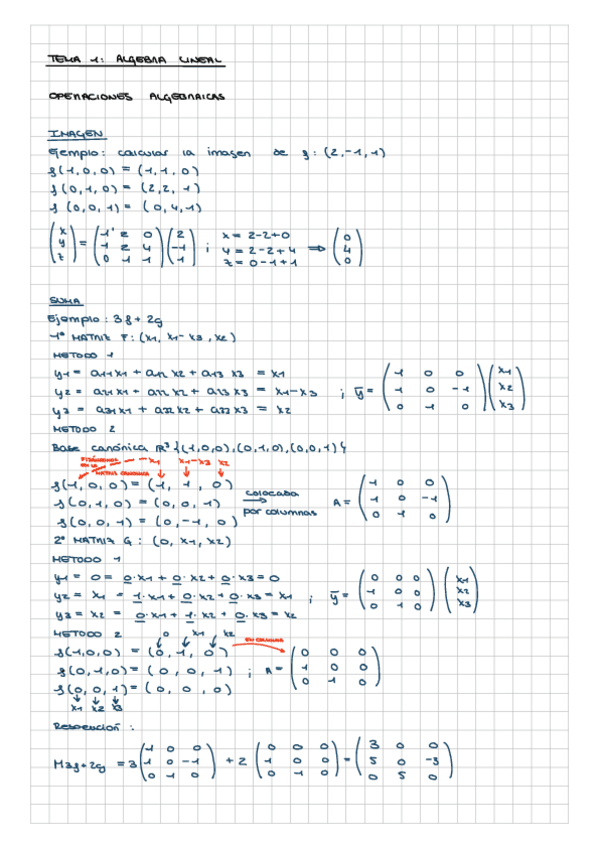 TEMA 1: ALGEBRA LINEAL
OPERACIONES ALGEBRAICAS
IMAGEN
Ejemplo: calcular la imagen de f: (2,-1,1)
f(1,0,0) = (1,1,0)
f(0,1,0) = (2,2,1)
f(0,0,1) = (0,4,1)
(x y z) = (1 2 0 / 1 2 4 / 0 1 1) (2 -1 1) ; x = 2-2+0
y = 2-2+4 ⟹ (0 4 0)
z = 0-1+1
SUMA
Ejemplo: 3f + 2g
1º MATRIZ F: (x1, x1-x3, x2)
METODO 1
y1 = a11x1 + a12x2 + a13x3 = x1
y2 = a21x1 + a22x2 + a23x3 = x1-x3 ; y = (1 0 0 / 1 0 -1 / 0 1 0) (x1 x2 x3)
y3 = a31x1 + a32x2 + a33x3 = x2
METODO 2
Base canónica R³ {(1,0,0),(0,1,0),(0,0,1)}
FIJÁNDONOS EN LA MATRIZ CANONICA x1 x1-x3 x2
f(1,0,0) = (1, 1, 0)
f(0,1,0) = (0,0,1) colocado por columnas → A = (1 0 0 / 1 0 -1 / 0 1 0)
f(0,0,1) = (0,-1,0)
2º MATRIZ G: (0, x1, x2)
METODO 1
y1 = 0 = 0·x1 + 0·x2 + 0·x3 = 0
y2 = x1 = 1·x1 + 0·x2 + 0·x3 = x1 ; y = (0 0 0 / 1 0 0 / 0 1 0) (x1 x2 x3)
y3 = x2 = 0·x1 + 1·x2 + 0·x3 = x2
METODO 2 0 x1 x2
f(1,0,0) = (0, 1, 0) EN COLUMNA
f(0,1,0) = (0, 0, 1) ; A = (0 0 0 / 1 0 0 / 0 1 0)
f(0,0,1) = (0, 0, 0)
x1 x2 x3
Resolución:
M3f+2g = 3 (1 0 0 / 1 0 -1 / 0 1 0) + 2 (0 0 0 / 1 0 0 / 0 1 0) = (3 0 0 / 5 0 -3 / 0 5 0)